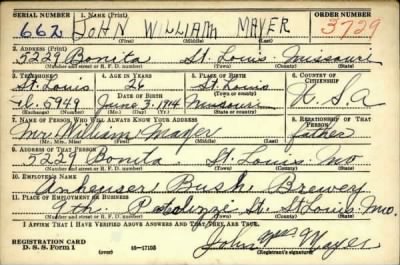 SERIAL NUMBER 1. NAME (Print) ORDER NUMBER
662 JOHN WILLIAM MAYER 3729
(First) (Middle) (Last)
2. ADDRESS (Print)
5229 Bonita St. Louis Missouri
(Number and street or R. F. D. number) (Town) (County) (State)
3. TELEPHONE 4. AGE IN YEARS 5. PLACE OF BIRTH 6. COUNTRY OF CITIZENSHIP
St. Louis 26 St Louis
DATE OF BIRTH (Town or county)
5949 June 3, 1914 Missouri U. S. A
(Exchange) (Number) (Mo.) (Day) (Yr.) (State or country)
7. NAME OF PERSON WHO WILL ALWAYS KNOW YOUR ADDRESS 8. RELATIONSHIP OF THAT PERSON
Mr. William Mayer father
(Mr., Mrs., Miss) (First) (Middle) (Last)
9. ADDRESS OF THAT PERSON
5229 Bonita. St. Louis. Mo
(Number and street or R. F. D. number) (Town) (County) (State)
10. EMPLOYER'S NAME
Anheuser Bush Brewery
11. PLACE OF EMPLOYMENT OR BUSINESS
9th. Pestalozzi St. St Louis, Mo.
(Number and street or R. F. D. number) (Town) (County) (State)
I AFFIRM THAT I HAVE VERIFIED ABOVE ANSWERS AND THAT THEY ARE TRUE.
REGISTRATION CARD
D. S. S. Form 1 (over) 16-17105 John Wm Mayer
(Registrant's signature)